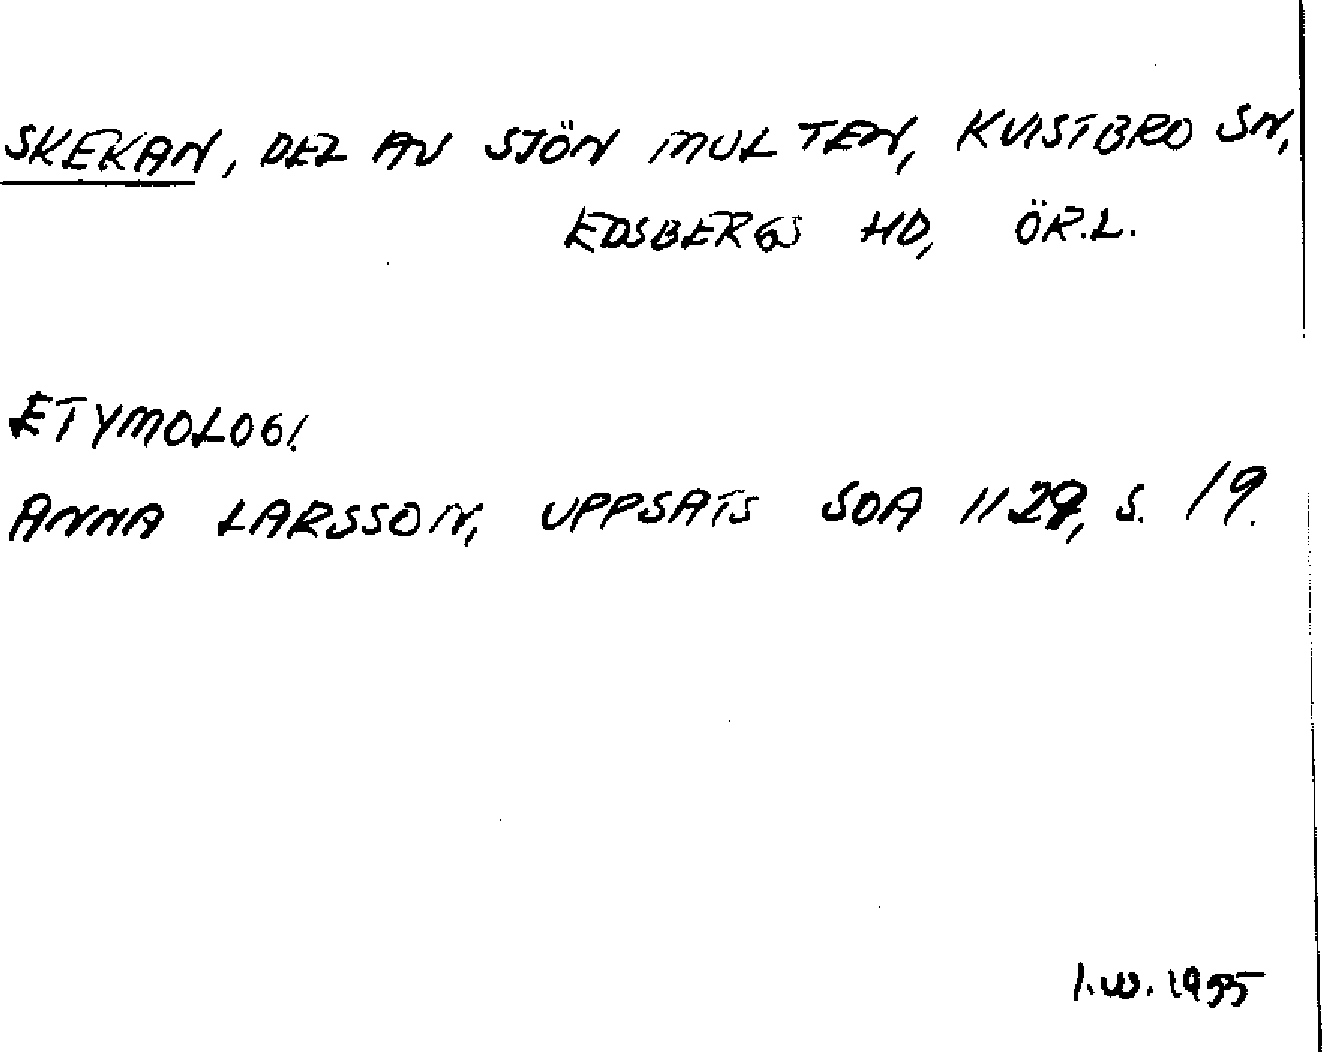 SKEKAN, DEL AV SJÖN MULTEN, KVISTBRO SN,
EDSBERGS HD, ÖR.L.
ETYMOLOGI
ANNA LARSSON, UPPSATS SOA 1129, S. 19.
I.W. 1955